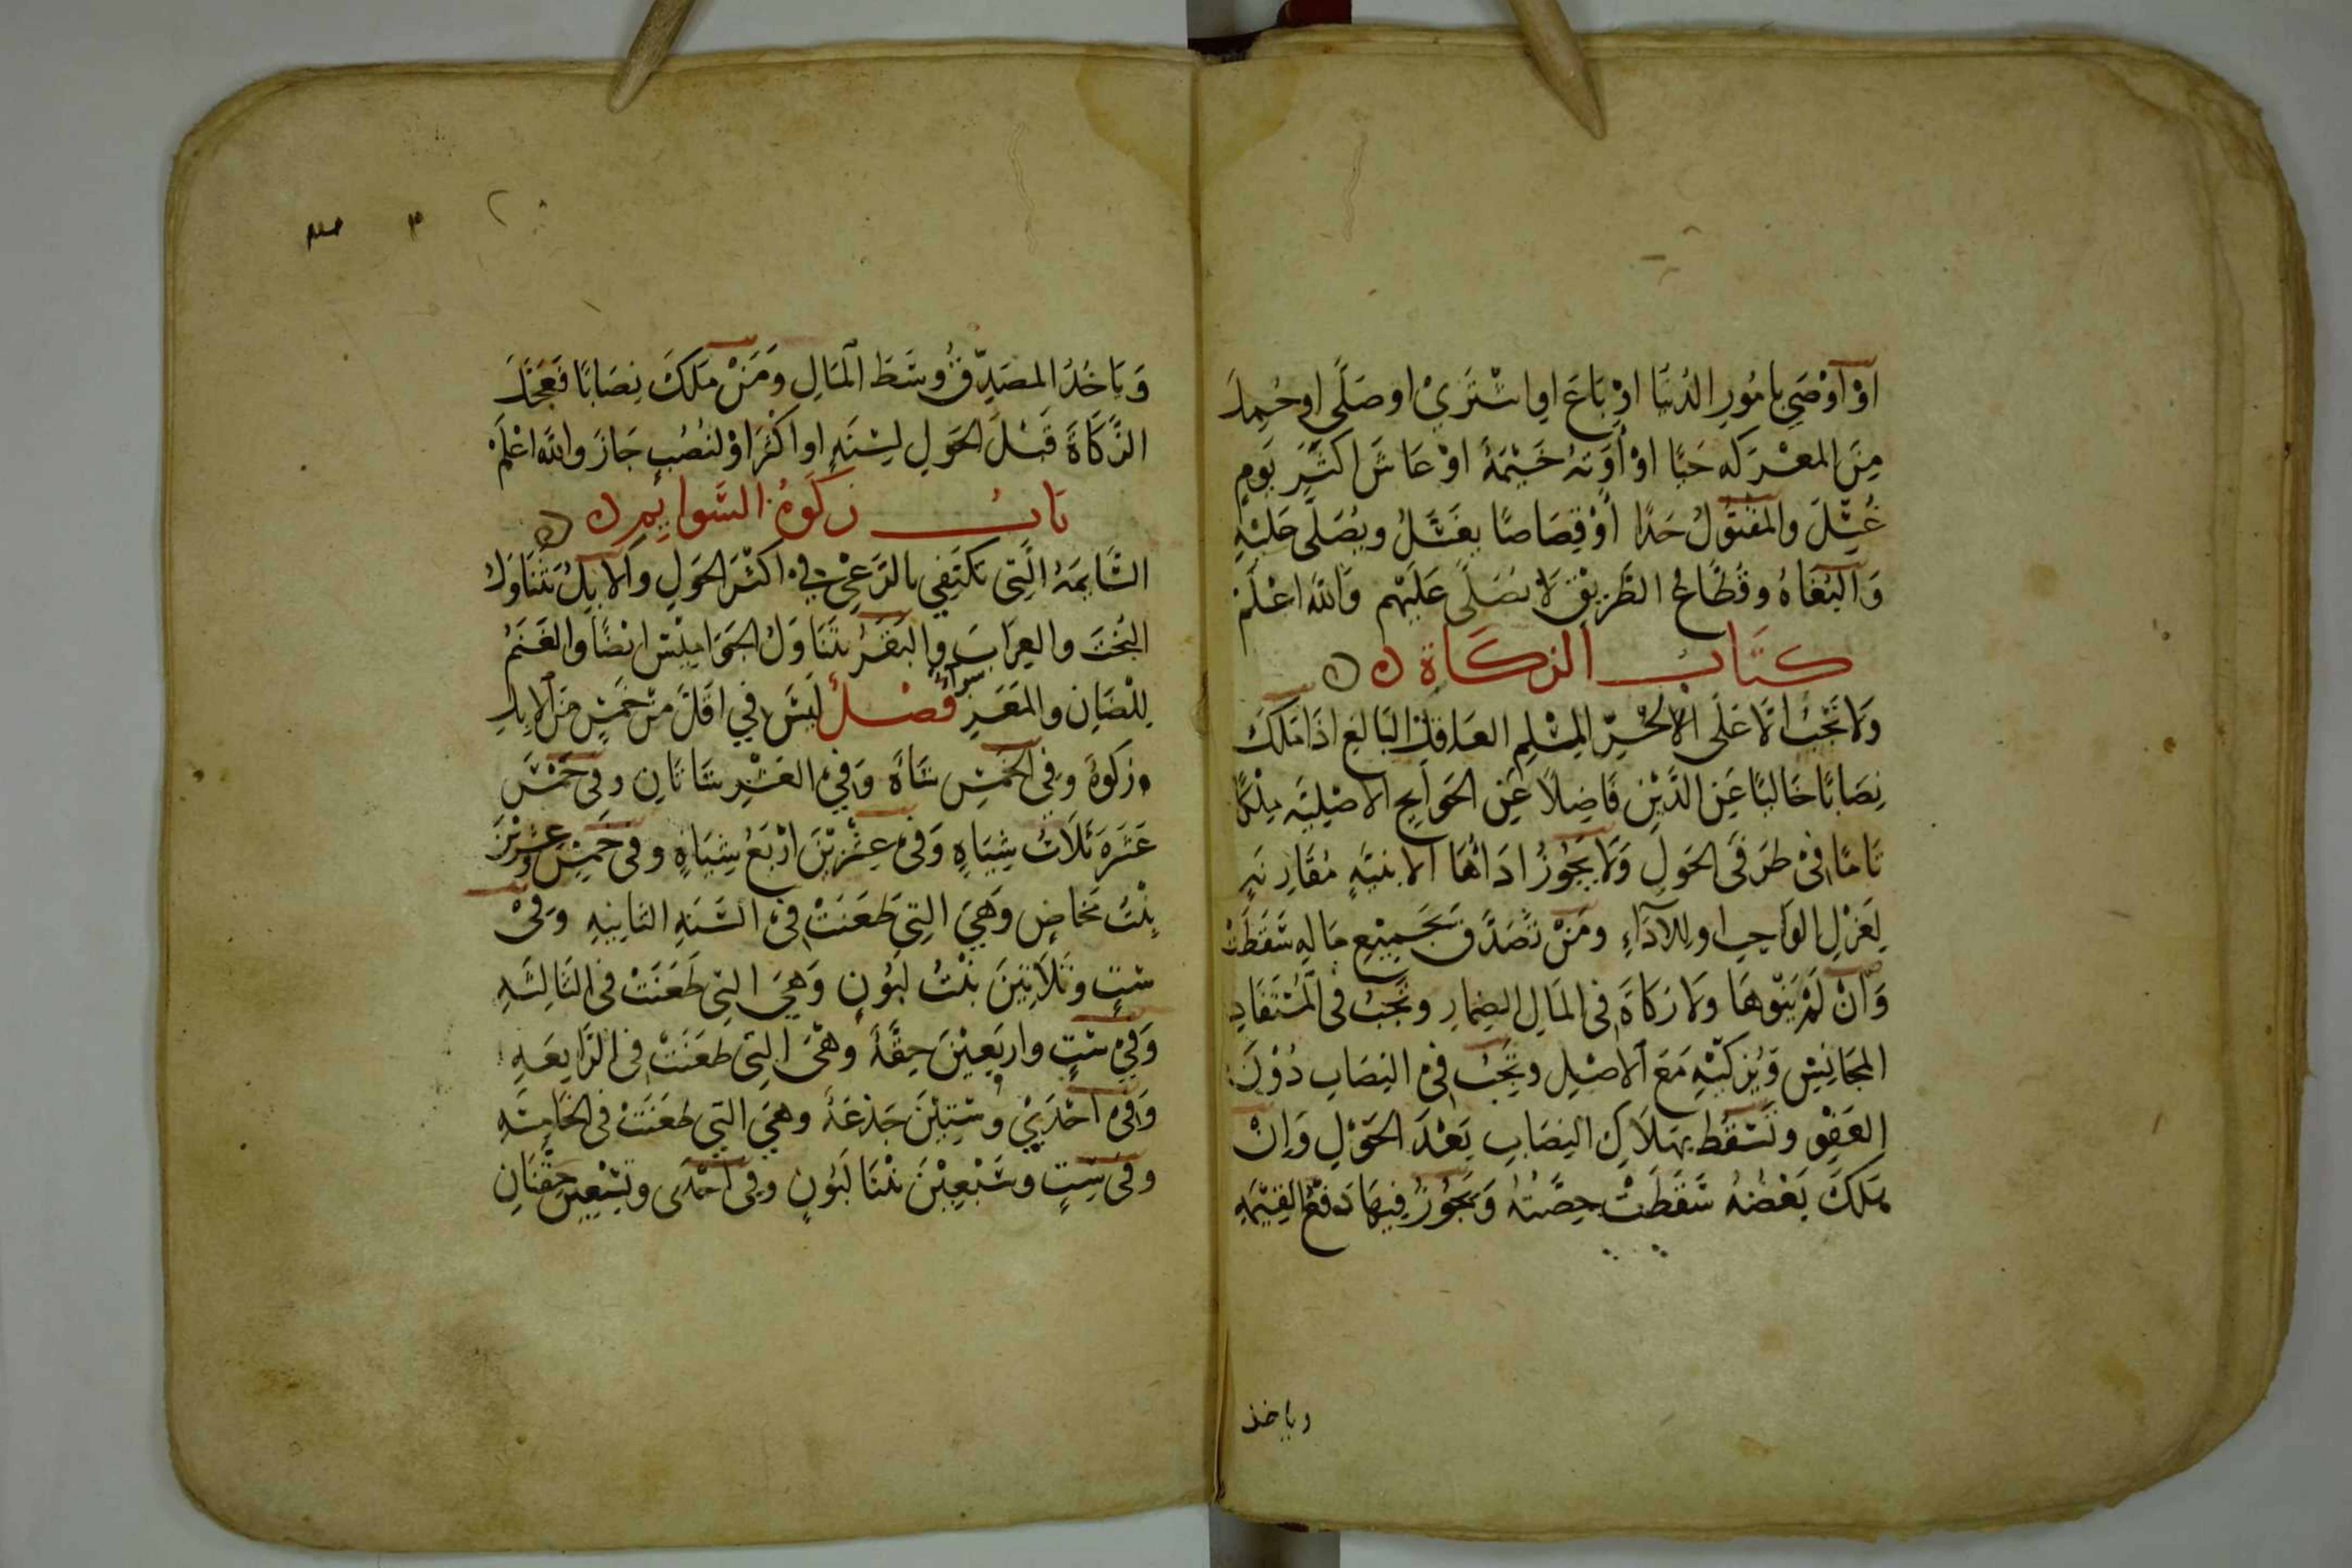 اَوْ اَوْصَي بامُورِ الدُنيَا اوْ بَاعَ اواشْتَرَيْ اوصَلَّى اوحُمِلَ
مِنَ المعْرَكه حَيًّا اوْ أَوَتهُ خَيْمَةُ اوْ عَاشَ اكثَرَ يَومٍ
غُسِّلَ والمَقْتوُلُ حَدًا أوْقِصَاصًا يغَسَّلُ ويُصَلَّى عَليْهِ
وَالبُغَاهُ وقُطَّاعُ الطَّرِيْقِ لَا يُصَلَّى عَلَيْهِم وَاللهُ اعْلَمْ
كتَابُ الزكَاة
ولا تَجِبُ اِلَّا عَلَى الْحُرِّ المسْلِمِ العَاقِلِ البَالِغِ اذَا مَلَكَ
نِصَابًا خَاليًا عَنِ الدَّيْنِ فَاضِلًا عَنِ الحَوَايجِ الاصْلِيَّهِ مِلْكًا
تَامًا فىْ طَرَفَى الحَولِ وَلَا يَجُوْزُ ادَاؤُهَا الا بنيَّهٍ مُقَارِنَهٍ
لِعَزْلِ الوَاجبِ او للادَاءِ ومَنْ تصَدَّقَ بجَمِيْعِ مَالِهِ سَقَطَتْ
وَانْ لَمْ يَنْوهَا ولا زكَاةَ فى المَالِ الضِمَارِ وتَجِبُ فى المُسْتَفَادِ
المجَانِسِ وَيُزَكّيْهِ مَعَ الاصْلِ وتَجِبُ فىْ النِصَابِ دُوْنَ
العَفْوِ وتَسْقُط بهَلَاكِ النِصَابِ بَعْدَ الحَوْلِ وَاِنْ
هَلَكَ بَعْضُهُ سَقَطَتْ حِصَّتُهُ وَيَجُوْزُ فِيهَا دَفْعُ القِيْمَهِ
وياخذ
وَيَاخُذُ المصَدِّقُ وسَطَ المَالِ ومَنْ مَلَكَ نِصَابًا فعَجَّلَ
الزَّكَاةَ قَبْلَ الحَوَلِ لِسَنَهٍ او اكْثَرَ اوْ لنُصُبٍ جَازَ واللهُ اعْلَمْ
بَابُ زكَوةُ السَّوايمِ
السَّايمَهُ الَّتِى تَكتَفِي بالرَعْىِ فيْ اكثَرِ الحَوَلِ والابِلُ تتَنَاوَلُ
البُخْتَ والعِرَابَ والبَقَرُ يتَنَاوَلُ الجَوَامِيْسَ ايْضًا والغَنَمُ
لِلْضَانِ والمَعَزِ سواءٌ فَصْلٌ لَيسَ في اقَلِّ مِنْ خَمسٍ مِنَ الابِلِ
زكَوةٌ وَفى الخَمْسِ شَاةٌ وَفيْ العَشْرِ شَاتَانِ وفى خَمْسَ
عَشَرَهَ ثَلَاثُ شِيَاهٍ وَفىْ عِشْرِيْنَ ارْبَعُ شِيَاهٍ وفى خَمْسٍ وعِشرِيْنَ
بِنْتُ مَخَاضٍ وَهَيَ التِي طَعَنَتْ فىْ السَّنَهِ الثَانِيهِ وَفىْ
سْتٍ وثَلَاثِيْنَ بنْتُ لَبُوْنٍ وَهَيَ التِي طَعَنَتْ فى الثَالِثَهِ
وَفيْ سْتٍ واربَعِيْنَ حِقَّهٌ وهْىَ التِي طَعَنَتْ فى الرَابِعَهِ
وَفىْ احْدَيْ وسْتِيْنَ جَذعَهٌ وهَي التِي طعَنَتْ فى الخَامِسَهِ
وفى سِتٍ وسَبْعِيْنَ بْنتَا لَبُونٍ وفى احْدَى وتِسْعِين حِقْتَانِ